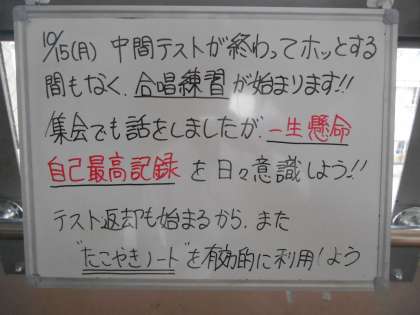 10/15(月) 中間テストが終わってホッとする
間もなく、合唱練習が始まります!!
集会でも話をしましたが、一生懸命
自己最高記録を日々意識しよう!!
テスト返却も始まるから、また
"たこやきノート"を有効的に利用しよう